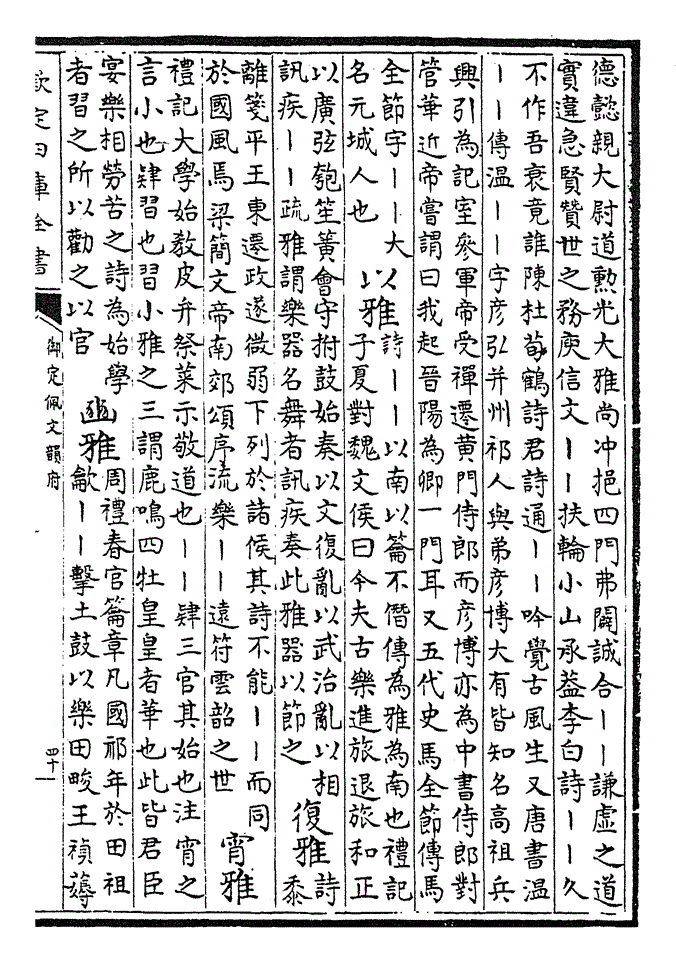 德懿親大尉道勲光大雅尚冲挹四門弗闢誠合丨丨謙虚之道
實違急賢贊世之務庾信文丨丨扶輪小山承葢李白詩丨丨久
不作吾衰竟誰陳杜荀鶴詩君詩通丨丨吟覺古風生又唐書温
丨丨傳温丨丨字彦弘并州祁人與弟彦博大有皆知名高祖兵
興引為記室參軍帝受禪遷黄門侍郎而彦博亦為中書侍郎對
管華近帝嘗謂曰我起晉陽為卿一門耳又五代史馬全節傳馬
全節字丨丨大
名元城人也
以雅
詩丨丨以南以籥不僭傳為雅為南也禮記
子夏對魏文侯曰今夫古樂進旅退旅和正
以廣弦匏笙簧會守拊鼓始奏以文復亂以武治亂以相
訊疾丨丨疏雅謂樂器名舞者訊疾奏此雅器以節之
復雅
詩
黍
離箋平王東遷政遂微弱下列於諸侯其詩不能丨丨而同
於國風焉梁簡文帝南郊頌序流樂丨丨遠符雲韶之世
宵雅
禮記大學始教皮弁祭菜示敬道也丨丨肄三官其始也注宵之
言小也肄習也習小雅之三謂鹿鳴四牡皇皇者華也此皆君臣
宴樂相勞苦之詩為始學
者習之所以勸之以官
豳雅
周禮春官籥章凡國祈年於田祖
龡丨丨擊土鼓以樂田畯王禎薅
欽定四庫全書
御定佩文韻府
四十